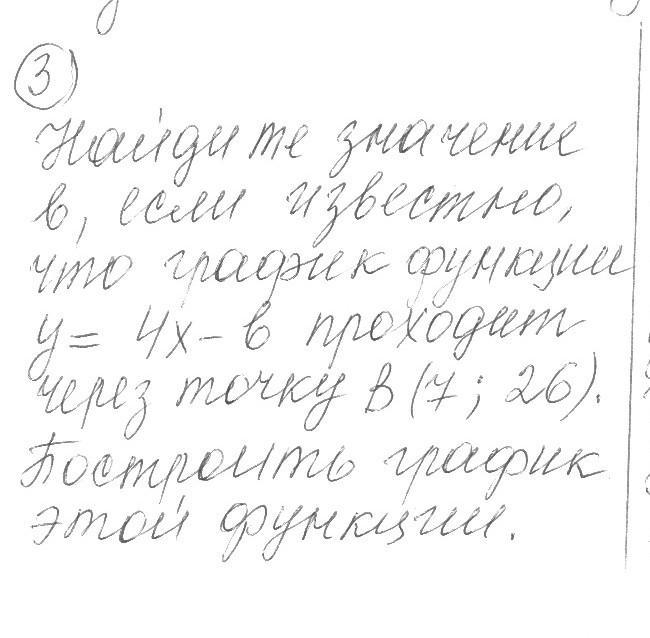 3
Найдите значение
в, если известно,
что график функции
у = 4х - в проходит
через точку В (7; 26).
Построить график
этой функции.